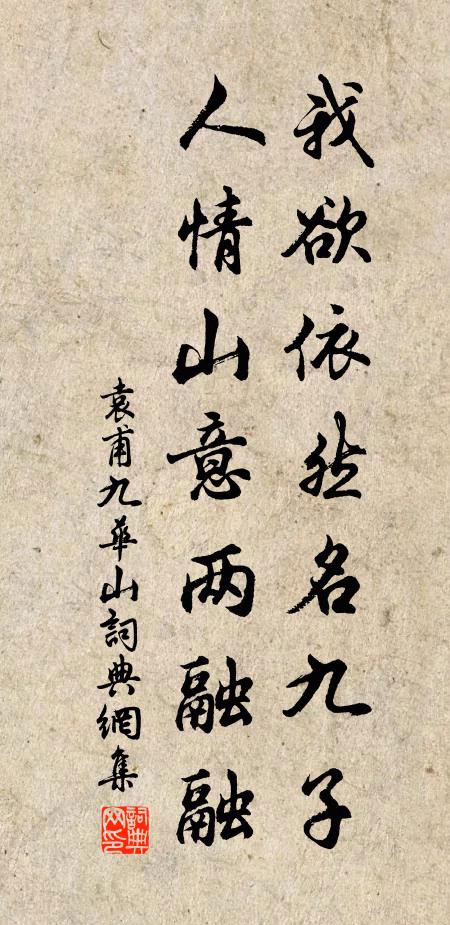 我欲依然名九子
人情山意两融融
袁甫九華山詞典網集
詞典網印